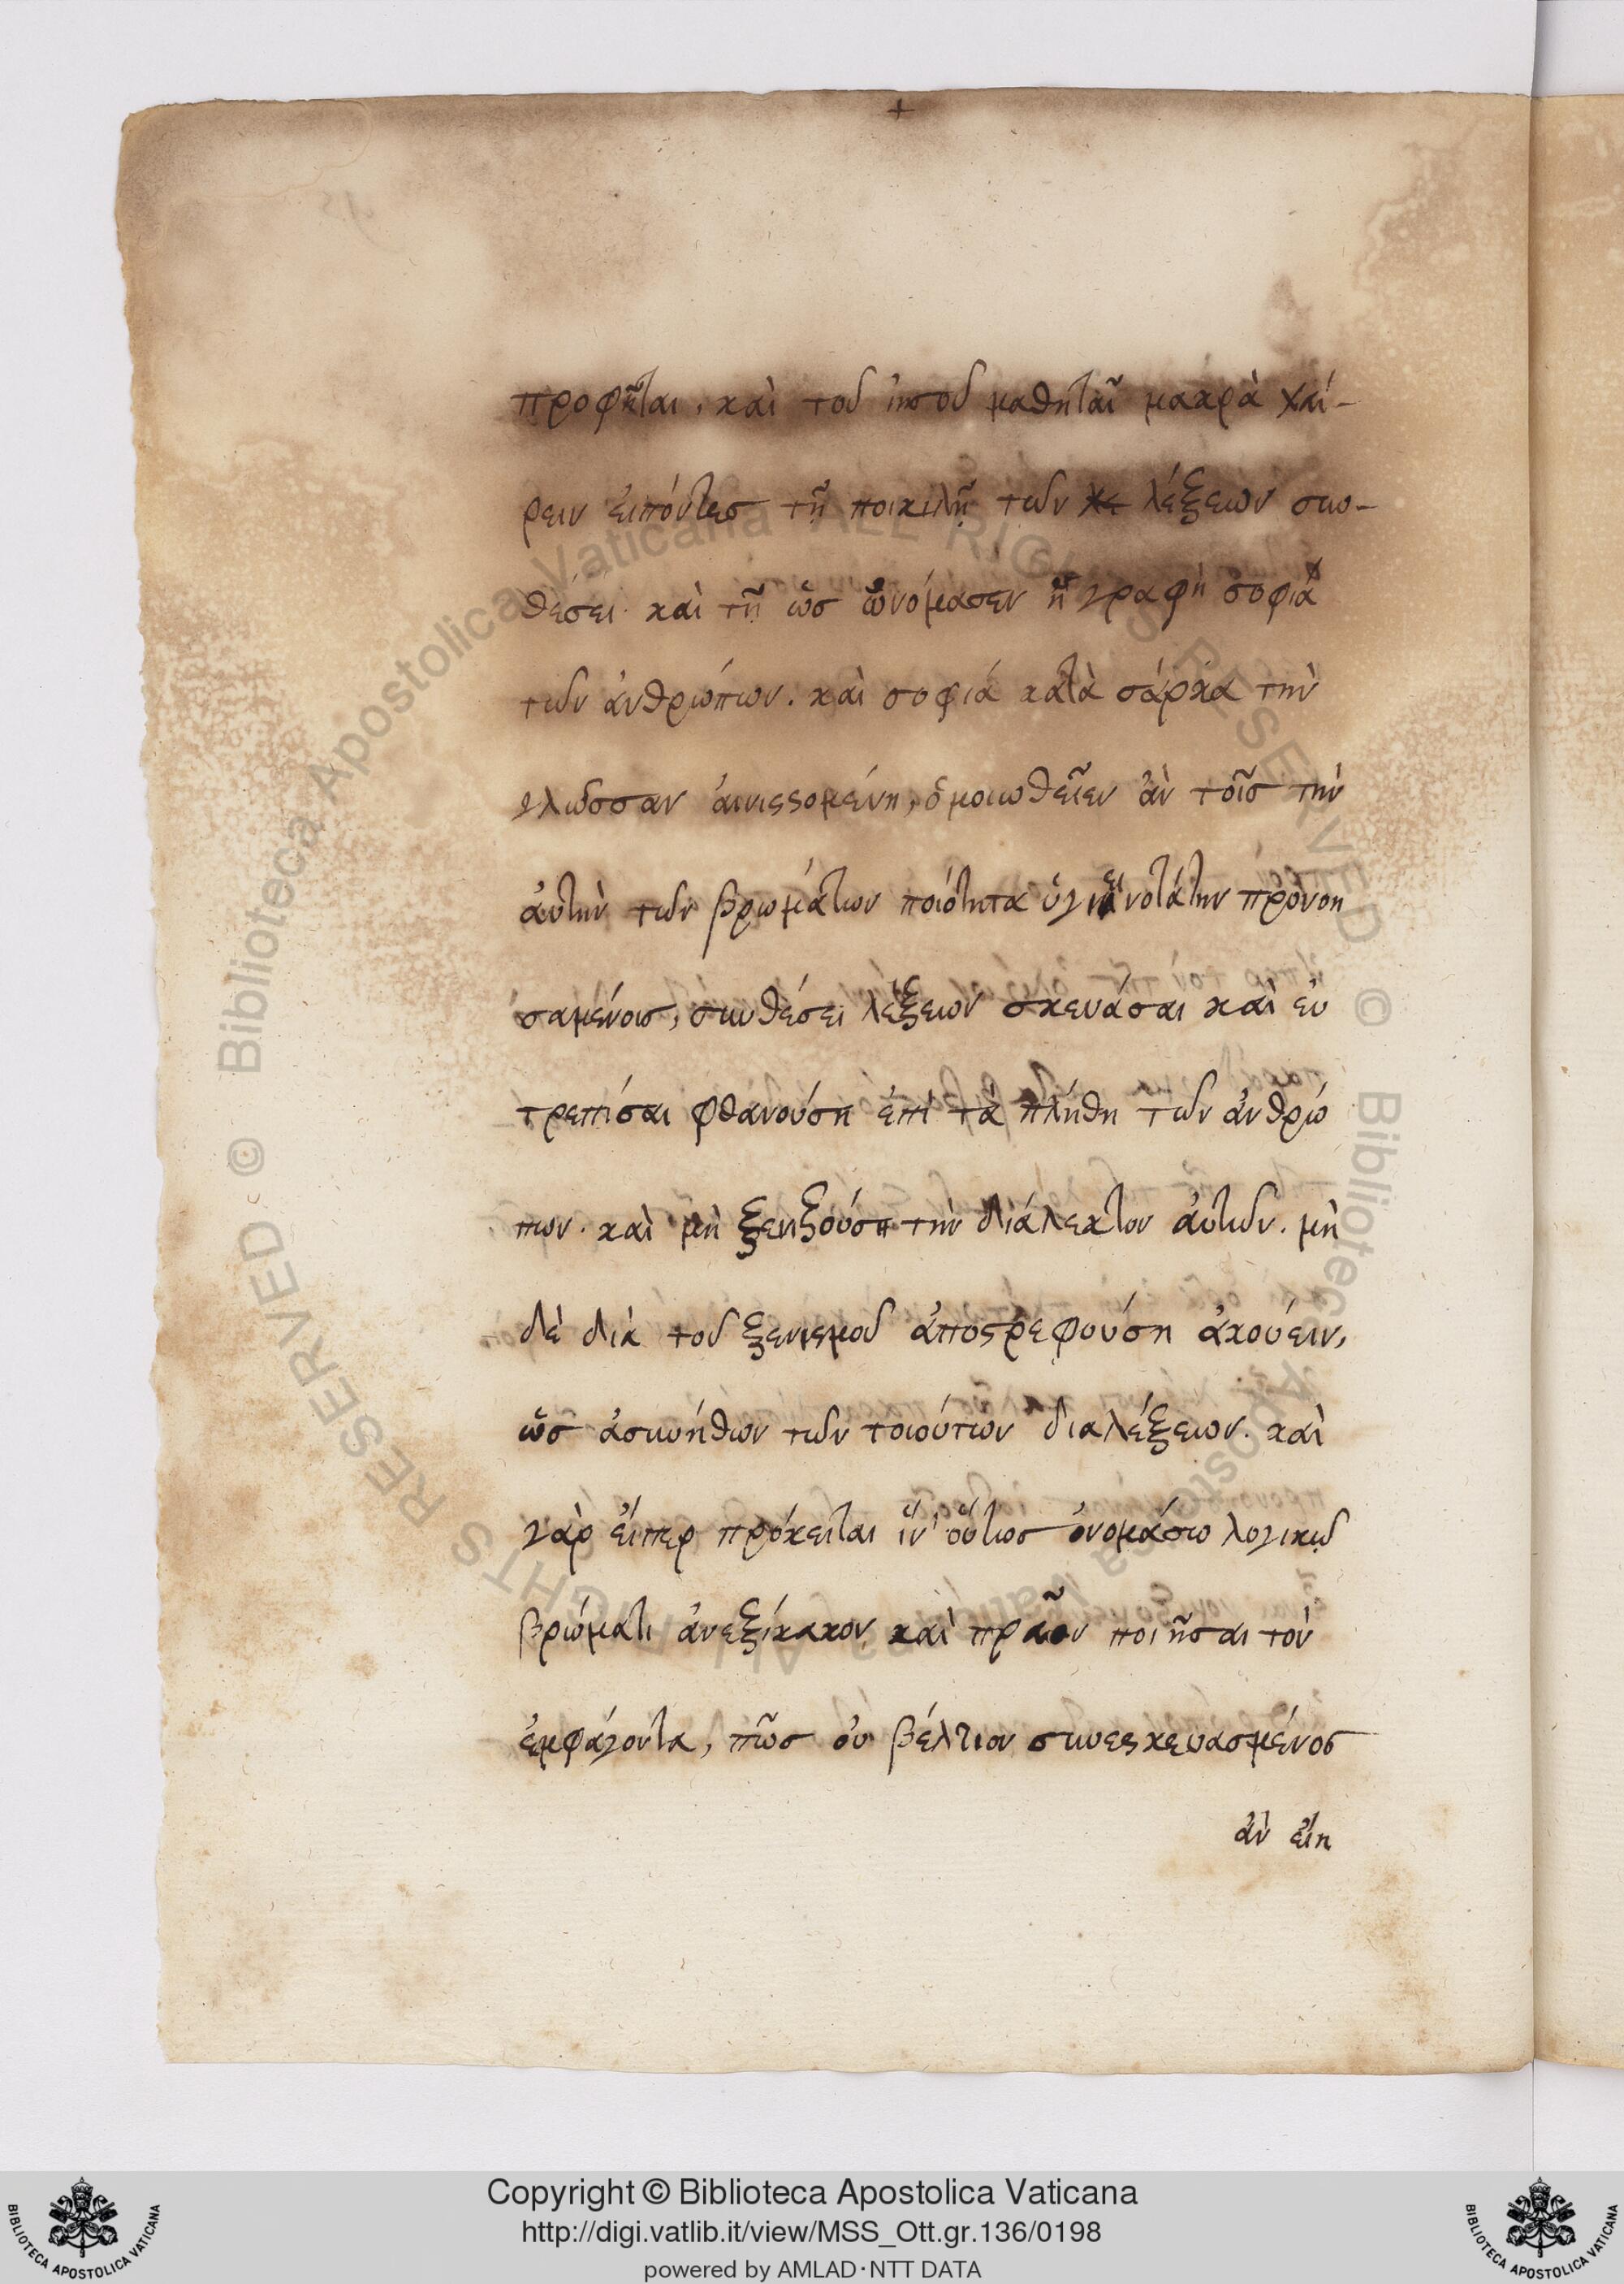 προφῆται, καὶ τοῦ ἰησοῦ μαθηταῖ μακρὰ χαί-
ρειν ἐιπόντες τῆ ποικιλῆ τῶν λέξεων συν-
θέσει καὶ τῆ ὡς ὠνόμασεν ἡ γραφὴ σοφιᾳ
τῶν ἀνθρώπων. καὶ σοφιά κατὰ σάρκα τὴν
γλῶσσαν ἀινισσομένη, ὁμοιωθεῖεν ἂν τοῖς τὴν
ἀυτὴν τῶν βρωμάτων ποιότητα ὑγιεινοτάτην προνοη
σαμένοις, συνθέσει λέξεων σκευάσαι καὶ ἐυ
τρεπίσαι φθανούση ἐπὶ τὰ πλήθη τῶν ἀνθρώ
πων. καὶ μὴ ξενιζούση τὴν διάλεκτον ἀυτῶν. μὴ
δὲ διὰ τοῦ ξενισμοῦ ἀποστρεφούση ἀκούειν,
ὡς ἀσυνήθων τῶν τοιούτων διαλέξεων. καὶ
γὰρ ἐίπερ πρόκειται ἵν' ὅυτως ὀνομάσω λογικῷ
βρώματι ἀνεξίκακον καὶ πρᾶον ποιῆσαι τὸν
ἐμφάγοντα, πῶς ὀυ βέλτιον συνεσκευασμένος
ἂν ἐίη
Copyright © Biblioteca Apostolica Vaticana
http://digi.vatlib.it/view/MSS_Ott.gr.136/0198
powered by AMLAD·NTT DATA